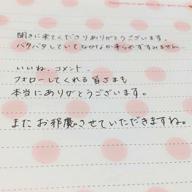 聞きに来てくださりありがとうございます。
バタバタしていてなかなか来られずすみません
いいね、コメント、
フォローしてくれる皆さまも
本当にありがとうございます。
またお邪魔させていただきますね。